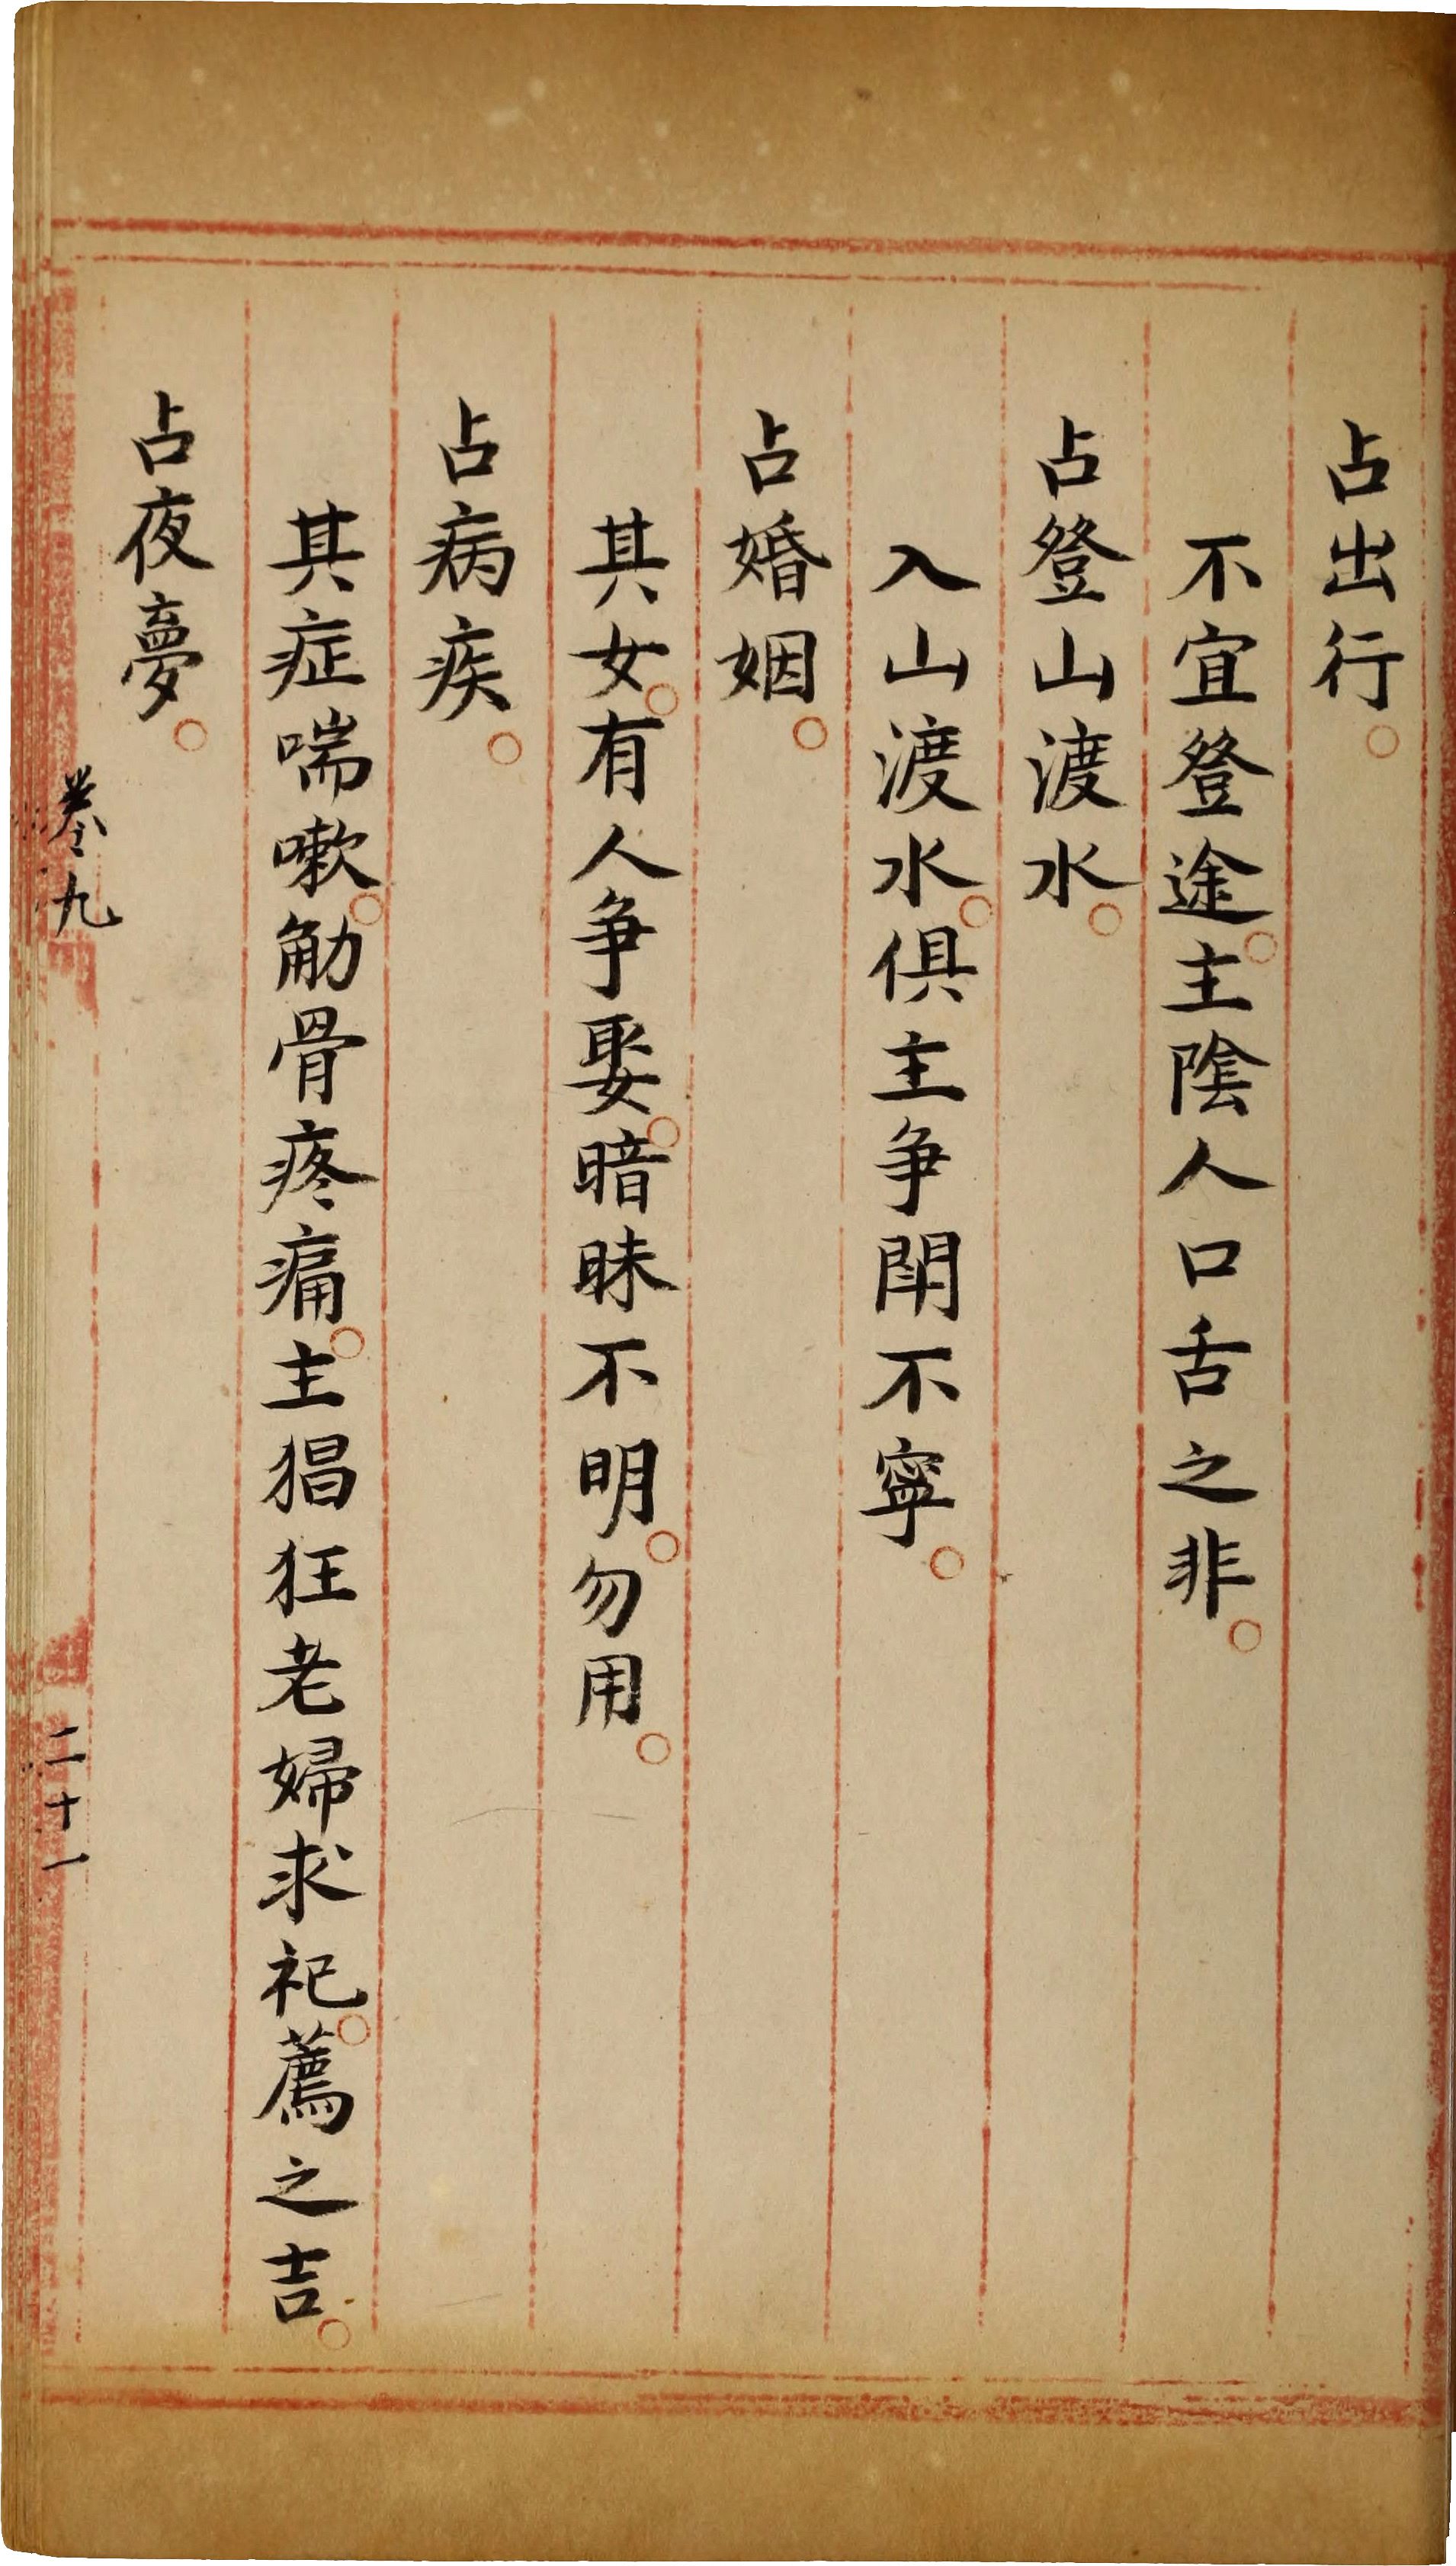 占出行。
不宜登途。主陰人口舌之非。
占登山渡水。
入山渡水。俱主争閙不寧。
占婚姻。
其女。有人争娶。暗昧不明。勿用。
占病疾。
其症喘嗽。觔骨疼痛。主猖狂老婦求祀。薦之吉。
占夜夢。
卷九
二十一